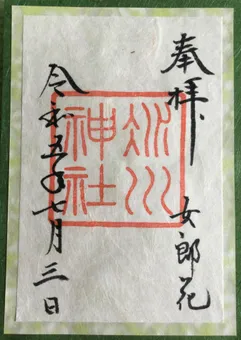 奉拝
女郎花
氷川
神社
令和五年七月三日